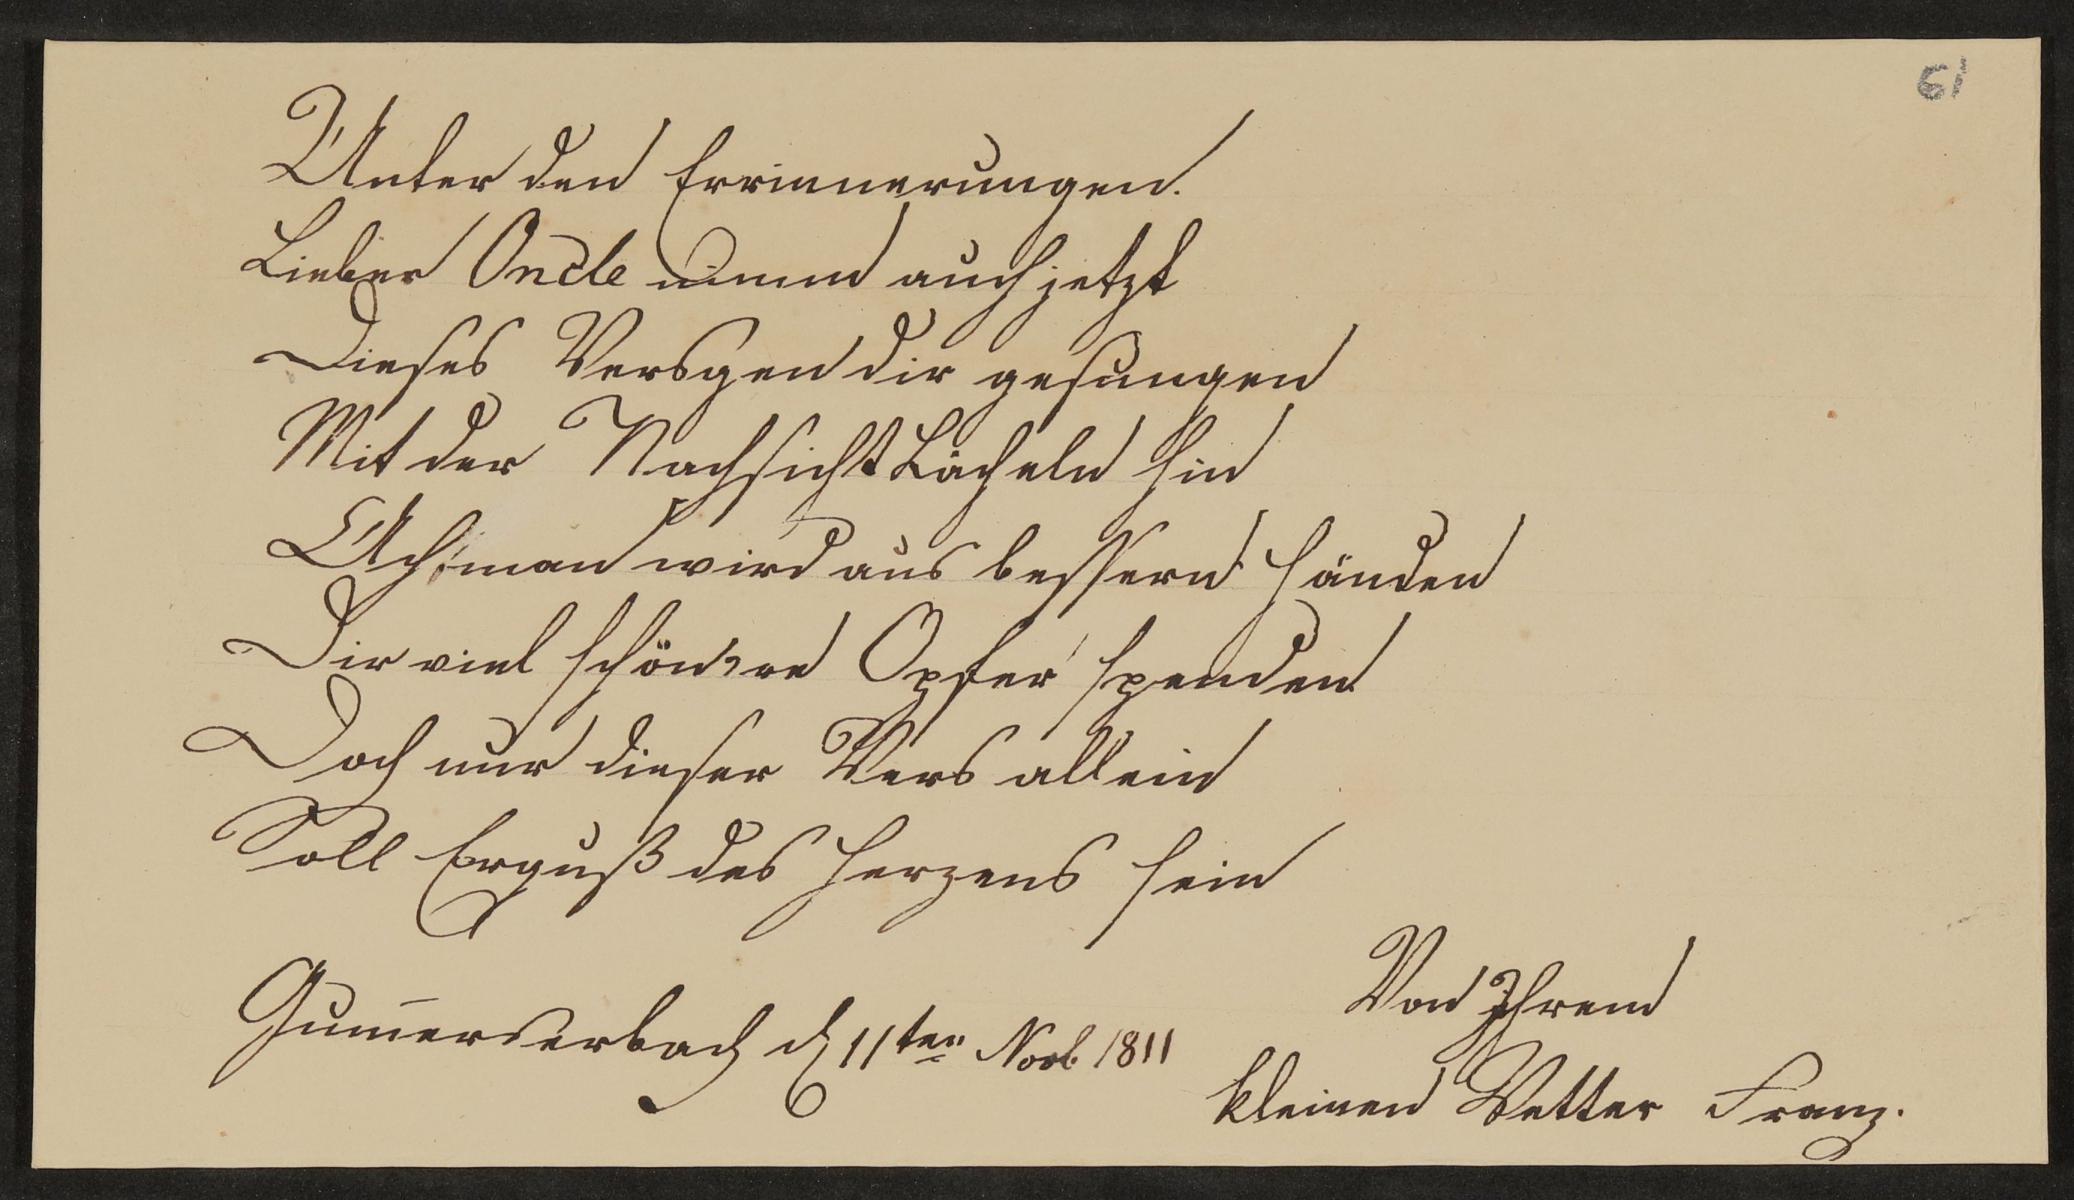 61
Unter den Errinnerungen.
Lieber Oncle nimm auch jetzt
Dieses Versgen dir gesungen
Mit der Nachsicht Lächeln hin
Ach man wird aus bessern Händen
Dir viel schön're Opfer spenden
Doch nur dieser Vers allein
Soll Erguß des Herzens sein
Von Ihrem
Gum̄erserbach d 11ten Novb. 1811
kleinen Vetter Franz.